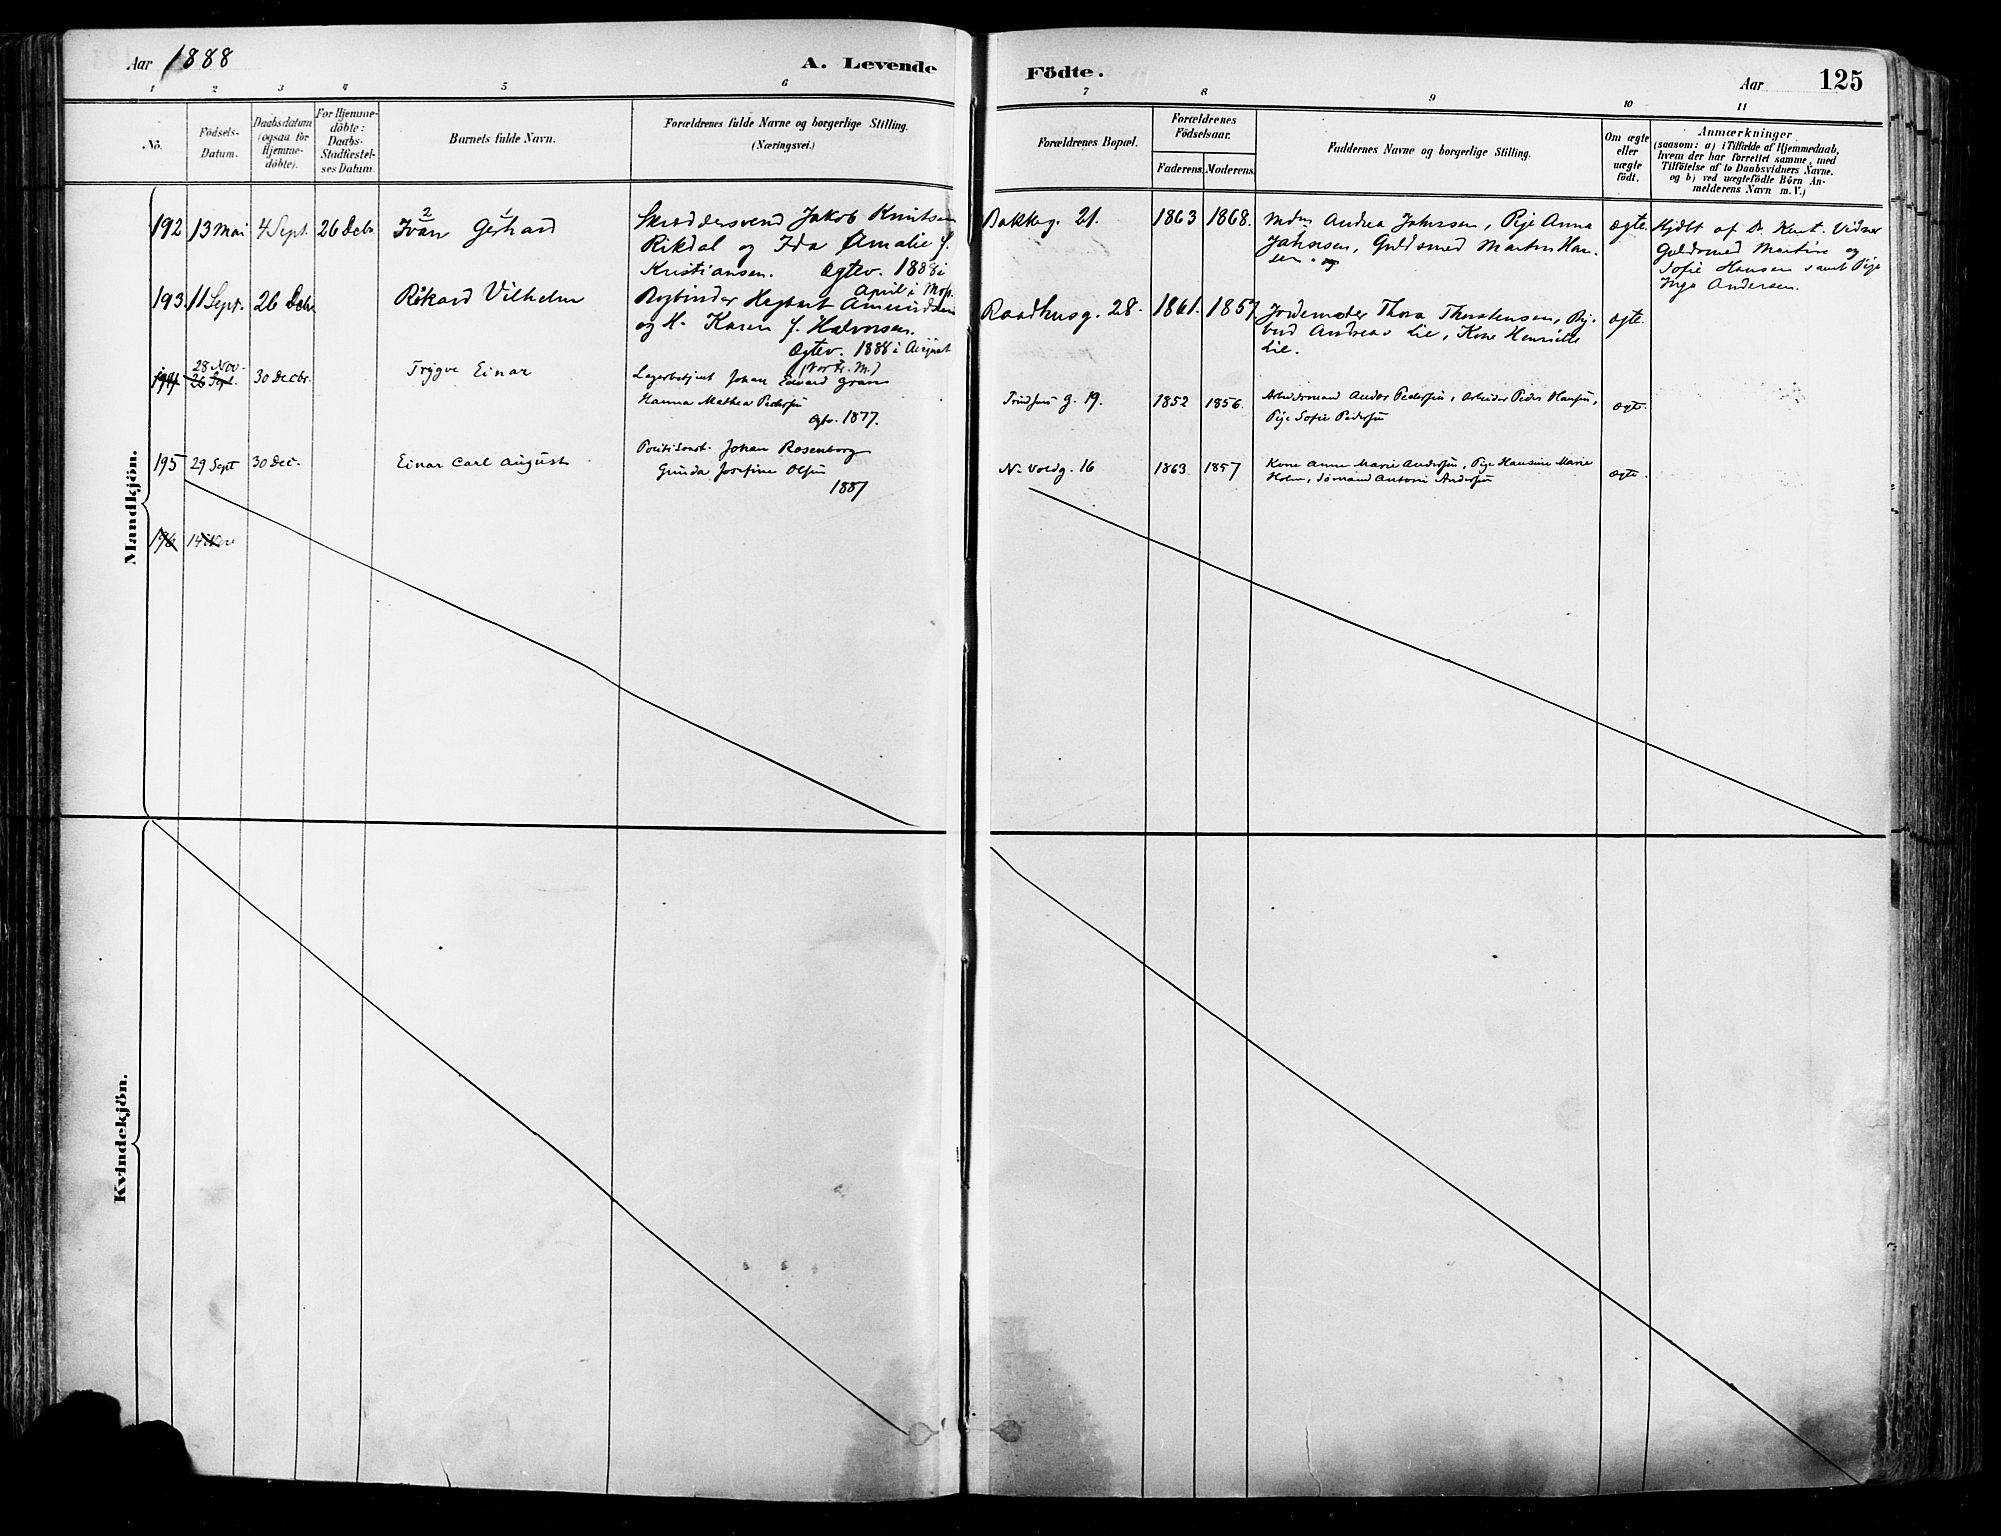 Aar 1888
A. Levende
Födte.
Aar
125
1 2 3 4 5 6 7 8 9 10 11
No.
Födsels-
Datum.
Daabsdatum
(ogsaa for
Hjemme-
döbte).
For Hjemme-
döbte:
Daabs-
Stadfæstel-
ses Datum.
Barnets fulde Navn.
Forældrenes fulde Navne og borgerlige Stilling.
(Næringsvei.)
Forældrenes Bopæl.
Forældrenes
Födselsaar.
Faderens. Moderens.
Faddernes Navne og borgerlige Stilling.
Om ægte
eller
uægte
födt.
Anmærkninger
(saasom: a) i Tilfælde af Hjemmedaab,
hvem der har forrettet samme, med
Tilföielse af to Daabsvidners Navne.
og b) ved uægtefödte Börn An-
melderens Navn m. V.)
Mandkjön.
192 13 Mai 4 Sept. 26 Decbr.
2 1
Ivan Gerhard
Skræddersvend Jakob Knutsen
Rikdal og Ida Amalie f.
Kristiansen. Ægtev. 1888 i
April i Moss.
Bakkeg. 21.
1863 1868.
Mdm Andrea Jahnsen, Pige Anna
Jahnsen, Guldsmed Martin Han-
sen. og
ægte.
Hjdbt af Dr. Vidner
Guldsmed Martin og
Sofie Hansen samt Pige
Inga Andersen.
193 11 Sept. 26 Decbr
Rikard Vilhelm
Bogbinder Hegbart Amundsen
og H. Karen f. Halvorsen.
Ægtev. 1888 i August
(Vor Fr. M.)
Raadhusg. 28.
1861. 1857
Jordemoder Thora Thorstensen, By-
bud Andreas Lie, Kone Henriette
Lie.
ægte.
194 28 Nov.
26 Sept. 30 Decbr.
Trygve Einar
Lagerbetjent Johan Edvard Gran
Hanna Mathea Pedersen
Ægtv. 1877.
g. 19.
1852 1856.
Arbeidsmand Andor Pedersen, Arbeider Peder Hansen,
Pige Sofie Pedersen
ægte.
195 29 Sept 30 Dec.
Einar Carl August
Politikonst. Johan Rosenborg
Gunda Josefine Olsen
1887
N. Voldg. 16
1863. 1857
Kone Anne Marie Andersen, Pige Hansine Marie
Holm, Sømand Antoni Andersen
ægte.
196 14
Kvindekjön.